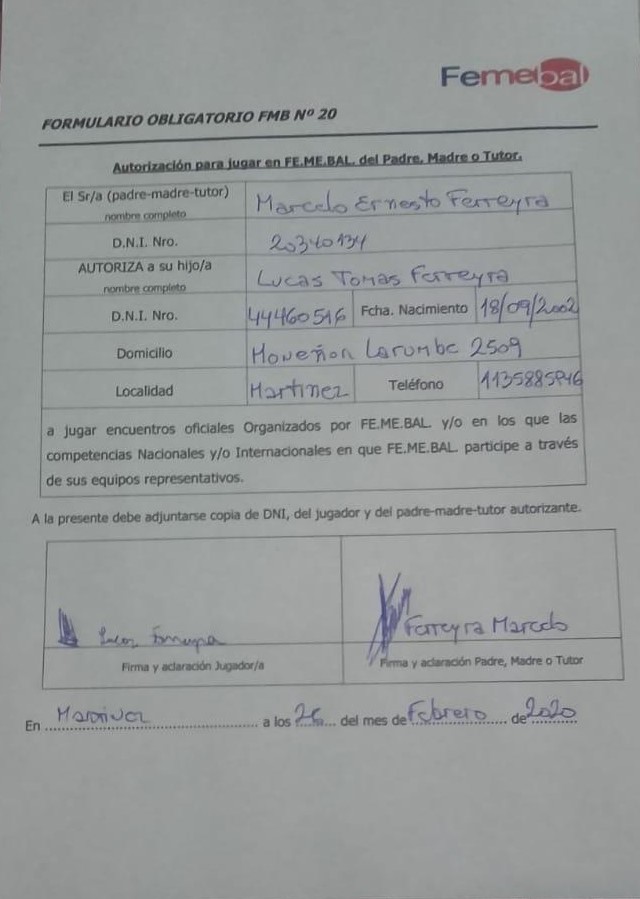 Femebal
FORMULARIO OBLIGATORIO FMB Nº 20
Autorización para jugar en FE.ME.BAL. del Padre, Madre o Tutor.
El Sr/a (padre-madre-tutor)
nombre completo
Marcelo Ernesto Ferreyra
D.N.I. Nro.
20340134
AUTORIZA a su hijo/a
nombre completo
Lucas Tomas Ferreyra
D.N.I. Nro.
44460516
Fcha. Nacimiento
18/09/2002
Domicilio
Larumbe 2509
Localidad
Martinez
Teléfono
a jugar encuentros oficiales Organizados por FE.ME.BAL. y/o en los que las
competencias Nacionales y/o Internacionales en que FE.ME.BAL. participe a través
de sus equipos representativos.
A la presente debe adjuntarse copia de DNI, del jugador y del padre-madre-tutor autorizante.
Ferreyra Marcelo
Firma y aclaración Jugador/a
Firma y aclaración Padre, Madre o Tutor
En Martinez a los 26 del mes de Febrero de 2020